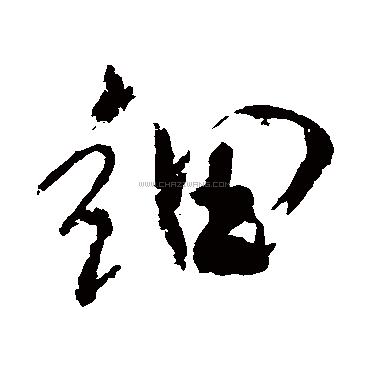 調
WWW.CHAZIWANG.COM